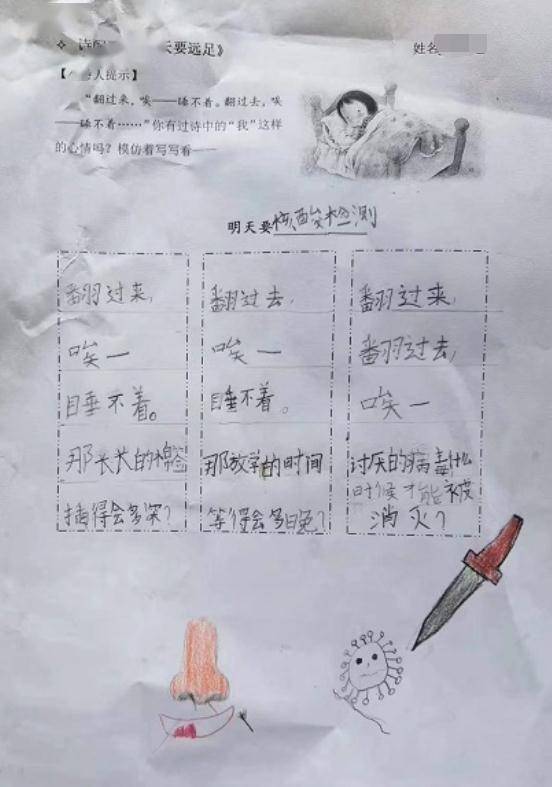 天要远足》
姓名
人提示】
“翻过来，唉——睡不着。翻过去，唉
——睡不着……”你有过诗中的“我”这样
的心情吗？模仿着写写看——
明天要核酸检测
翻过来，
唉—
睡不着。
那长长的棉签
插得会多深？
翻过去，
唉—
睡不着。
那放学的时间
等得会多晚？
翻过来，
翻过去，
唉—
讨厌的病毒什么
时候才能被
消灭？